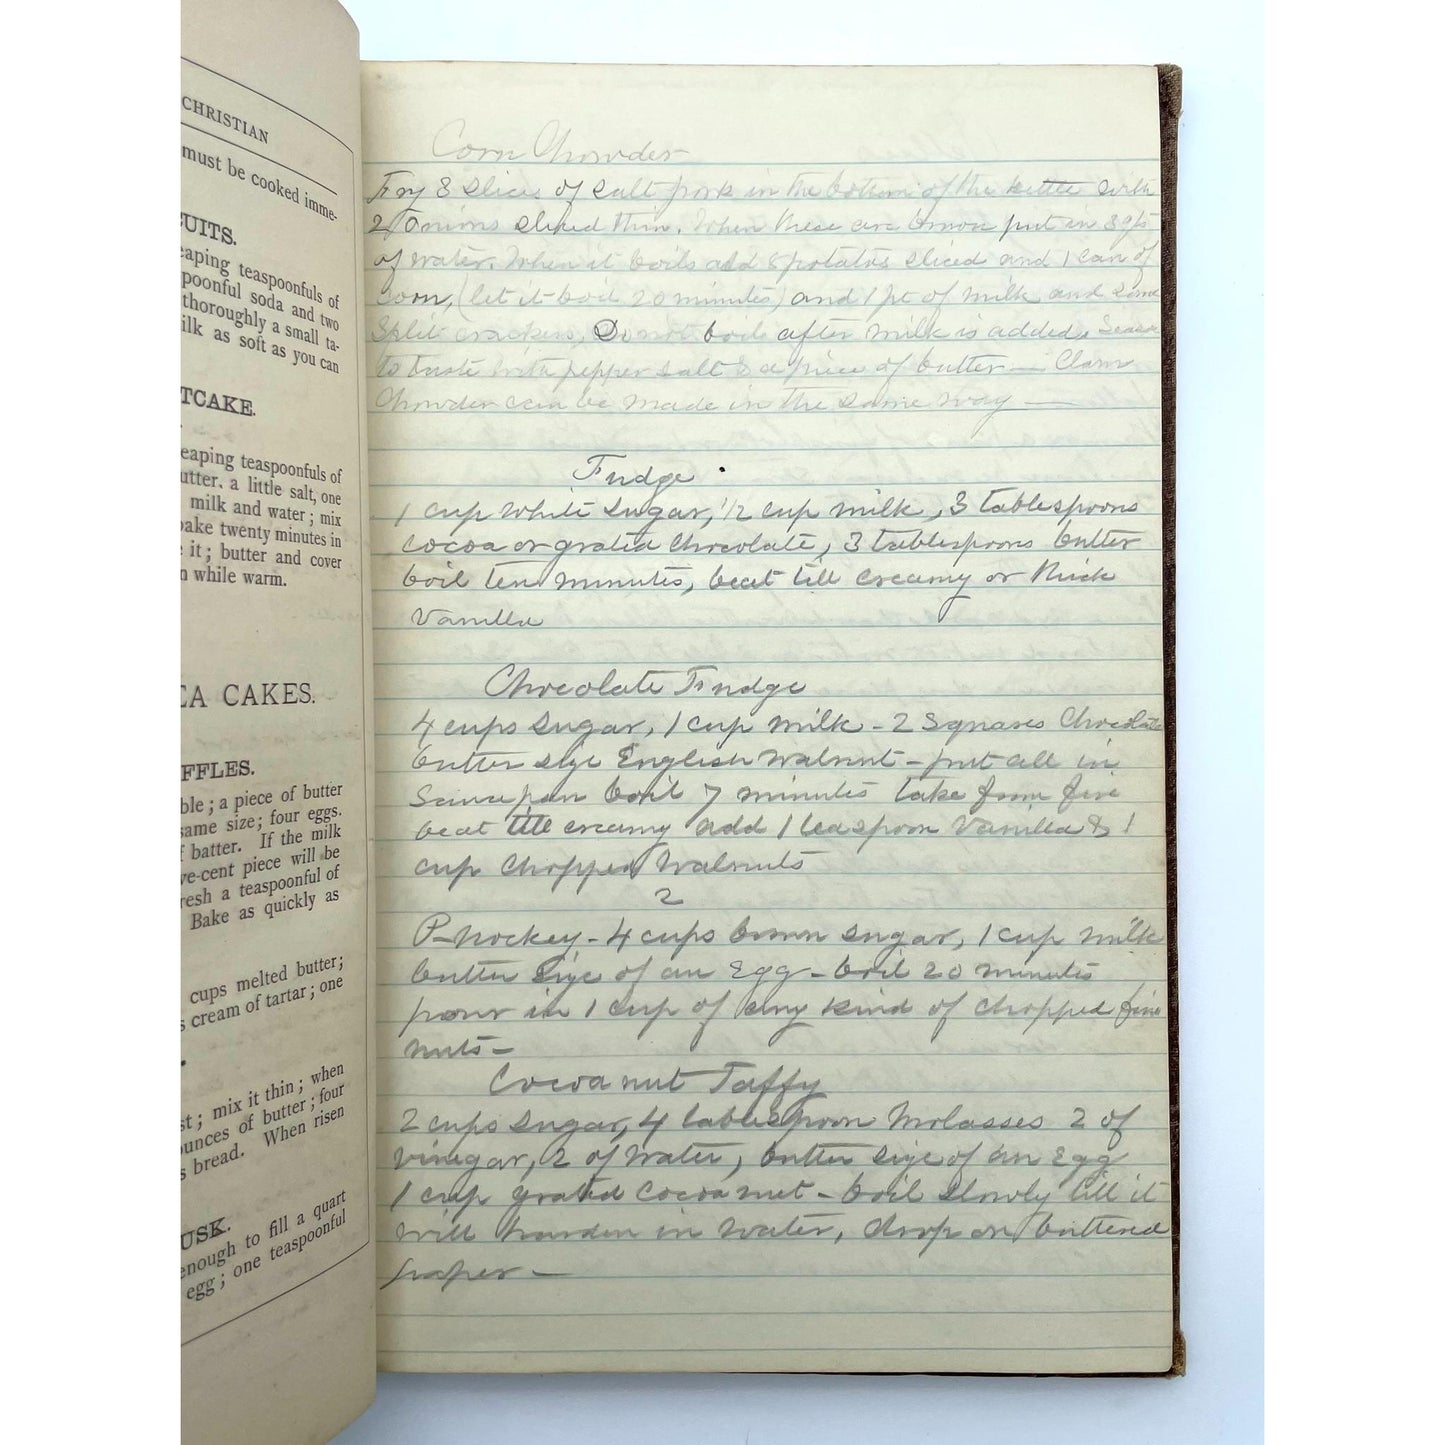 CHRISTIAN
must be cooked imme-
CUITS.
eaping teaspoonfuls of
poonful soda and two
thoroughly a small ta-
ilk as soft as you can
TCAKE.
eaping teaspoonfuls of
utter. a little salt, one
milk and water; mix
bake twenty minutes in
e it; butter and cover
n while warm.
EA CAKES.
FFLES.
ble; a piece of butter
same size; four eggs.
f batter. If the milk
ve-cent piece will be
resh a teaspoonful of
Bake as quickly as
cups melted butter;
s cream of tartar; one
st; mix it thin; when
ounces of butter; four
s bread. When risen
USK.
enough to fill a quart
egg; one teaspoonful
Corn Chowder
Fry 3 slices of salt pork in the bottom of the kettle with
2 onions sliced thin. When these are brown put in 3 qts
of water. When it boils add 8 potatos sliced and 1 can of
corn, (let it boil 20 minutes) and 1 pt of milk and some
Split crackers, Do not boil after milk is added. Season
to taste with pepper salt & a piece of butter — Clam
Chowder can be made in the same way —
Fudge
1 cup white sugar, 1/2 cup milk, 3 tablespoons
cocoa or grated chocolate, 3 tablespoons butter
boil ten minutes, beat till creamy or thick
Vanilla
Chocolate Fudge
4 cups sugar, 1 cup milk - 2 squares Chocolate
butter size English walnut - put all in
Saucepan boil 7 minutes take from fire
beat till creamy add 1 teaspoon Vanilla & 1
cup chopped walnuts
2
P-nockey - 4 cups brown sugar, 1 cup milk
butter size of an egg - boil 20 minutes
pour in 1 cup of any kind of chopped fine
nuts -
Cocoanut Taffy
2 cups sugar, 4 tablespoon Molasses 2 of
vinegar, 2 of water, butter size of an egg
1 cup grated Cocoanut - boil slowly till it
will harden in water, drop on buttered
paper -